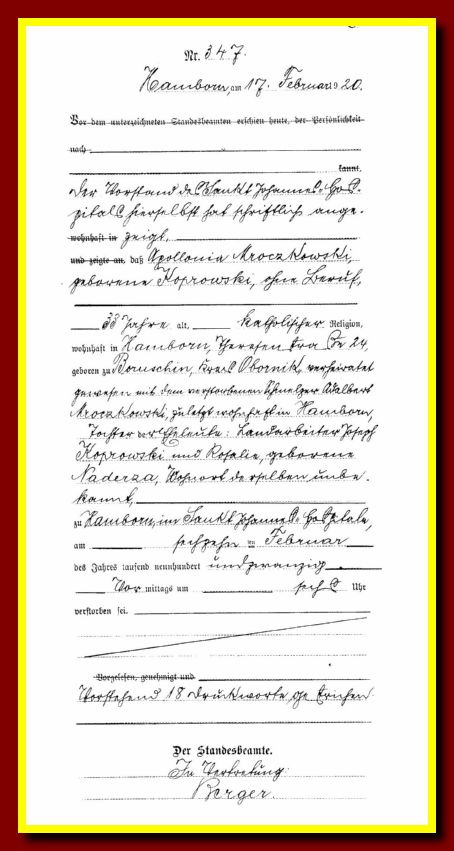 Nr. 347.
Hamborn, am 17. Februar 1920.
Vor dem unterzeichneten Standesbeamten erschien heute, der Persönlichkeit
nach
kannt,
Der Vorstand des Sankt Johannes-Hos-
pitals hierselbst hat schriftlich ange-
wohnhaft in zeigt,
und zeigte an, daß Apollonia Mroczkowski,
geborene Koprowski, ohne Beruf,
33 Jahre alt, katholischer Religion,
wohnhaft in Hamborn, Theresenstraße 24,
geboren zu Bomschin, Kreis Obornik, verheiratet
gewesen mit dem verstorbenen Schmelzer Adalbert
Mroczkowski, zuletzt wohnhaft in Hamborn,
Tochter der Eheleute: Landarbeiter Joseph
Koprowski und Rosalie, geborene
Naderza, Wohnort derselben unbe-
kannt,
zu Hamborn, im Sankt Johannes-Hospitale,
am sechzehn ten Februar
des Jahres tausend neunhundert undzwanzig
Vor mittags um sechs Uhr
verstorben sei.
Vorgelesen, genehmigt und
Vorstehend 18 Druckworte gestrichen
Der Standesbeamte.
In Vertretung:
Berger.